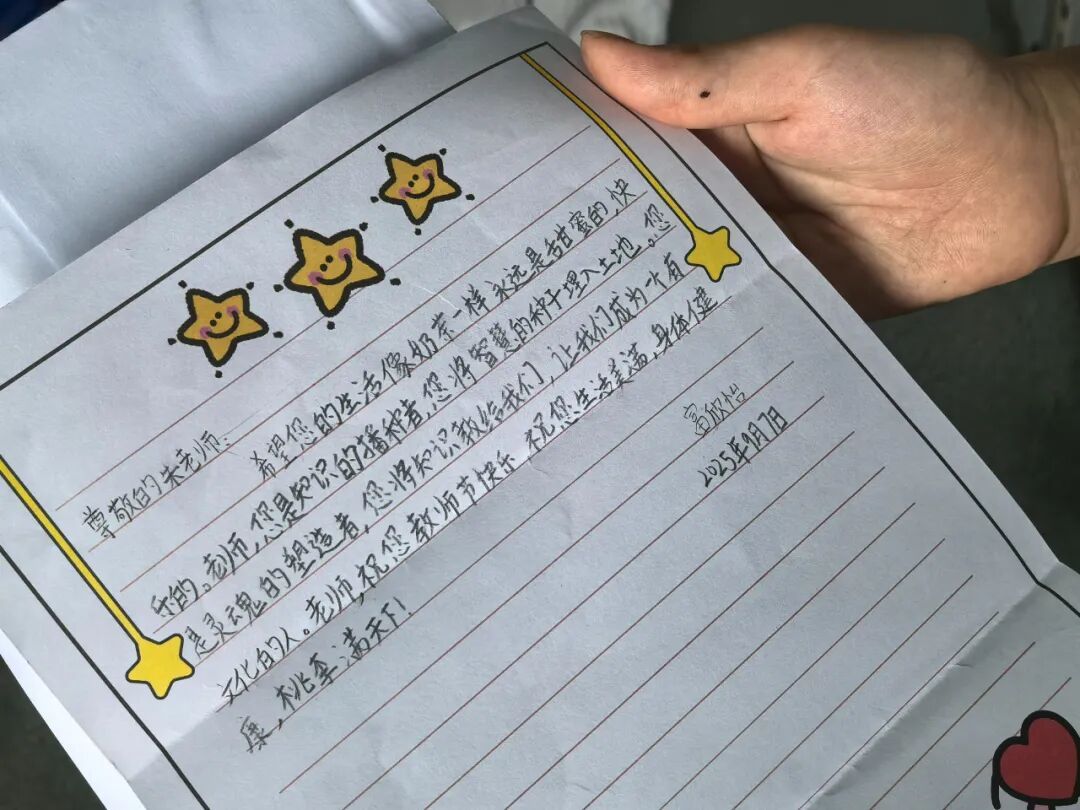 尊敬的朱老师：
希望您的生活像奶茶一样永远是甜蜜的，快
乐的。老师，您是知识的播种者，您将智慧的种子埋入土地。您
是灵魂的塑造者，您将知识教给我们，让我们成为一个有
文化的人。老师，祝您教师节快乐，祝您生活美满，身体健
康，桃李满天下！
富欣怡
2025年9月7日